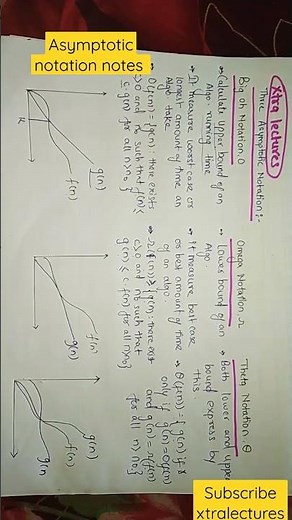 Asymptotic
notation notes
Xtra lectures
Three Asymptotic Notation:-
Big oh Notation, O
→ Calculate upper bound of an
Algo. running time
→ It measure worst case or
longest amount of time an
Algo take.
O(f(n)) = {g(n): there exist
c>0 and no such that f(n) ≤
c.g(n) for all n>no}
g(n)
f(n)
k
Omega Notation, Ω
→ lower bound of an
Algo
→ It measure best case
or best amount of time
of an algo.
→ Ω(f(n)) ≥ {g(n): there exist
c>0 and no such that
g(n) ≤ c.f(n) for all n>no}
f(n)
g(n)
Theta Notation, θ
→ Both lower and upper
bound express by
this.
→ θ(f(n)) = {g(n) if &
only if g(n) = O(f(n))
and g(n) = Ω(f(n))
for all n>no}
g(n)
f(n)
g(n)
Subscribe
xtralectures